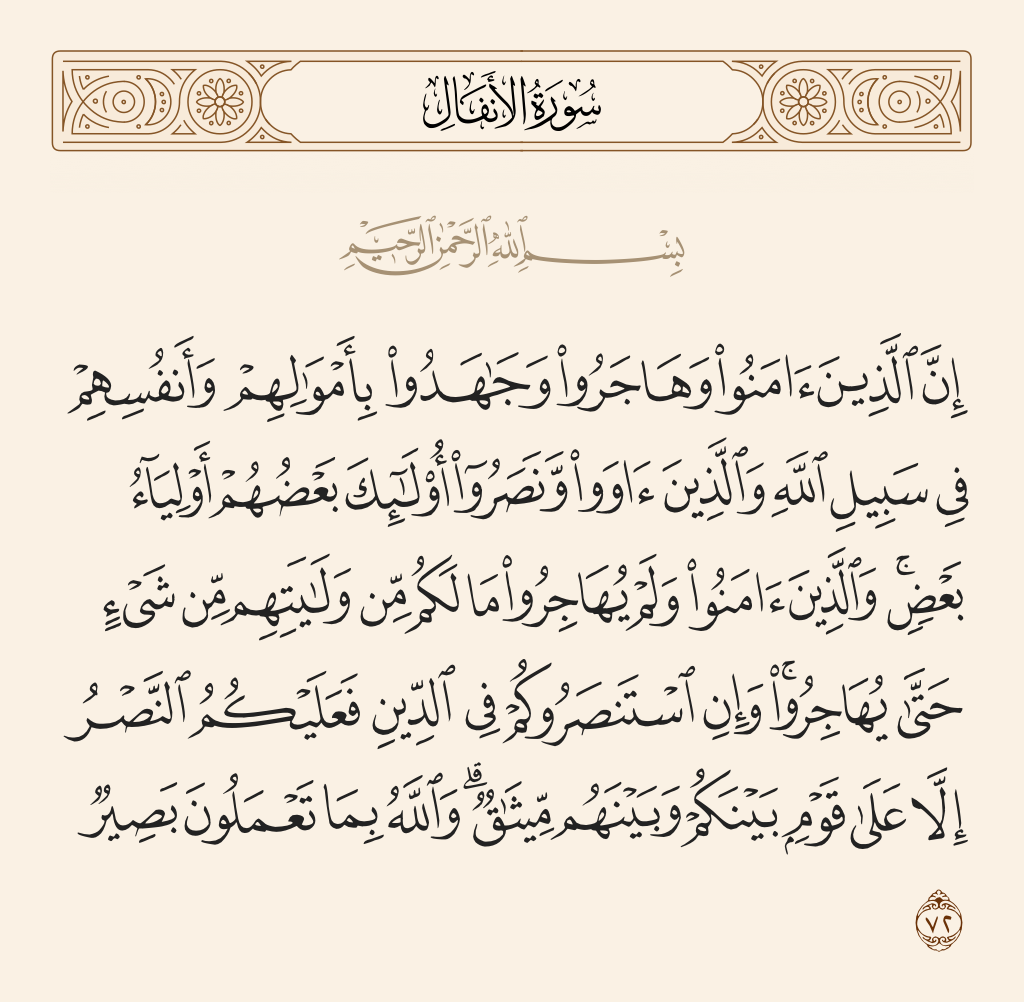 سُورَةُ الأَنفَالِ
بِسْمِ ٱللَّهِ ٱلرَّحْمَٰنِ ٱلرَّحِيمِ
إِنَّ ٱلَّذِينَ ءَامَنُوا۟ وَهَاجَرُوا۟ وَجَٰهَدُوا۟ بِأَمْوَٰلِهِمْ وَأَنفُسِهِمْ
فِى سَبِيلِ ٱللَّهِ وَٱلَّذِينَ ءَاوَوا۟ وَّنَصَرُوٓا۟ أُو۟لَٰٓئِكَ بَعْضُهُمْ أَوْلِيَآءُ
بَعْضٍۚ وَٱلَّذِينَ ءَامَنُوا۟ وَلَمْ يُهَاجِرُوا۟ مَا لَكُم مِّن وَلَٰيَتِهِم مِّن شَىْءٍ
حَتَّىٰ يُهَاجِرُوا۟ۚ وَإِنِ ٱسْتَنصَرُوكُمْ فِى ٱلدِّينِ فَعَلَيْكُمُ ٱلنَّصْرُ
إِلَّا عَلَىٰ قَوْمٍۭ بَيْنَكُمْ وَبَيْنَهُم مِّيثَٰقٌۗ وَٱللَّهُ بِمَا تَعْمَلُونَ بَصِيرٌ
٧٢